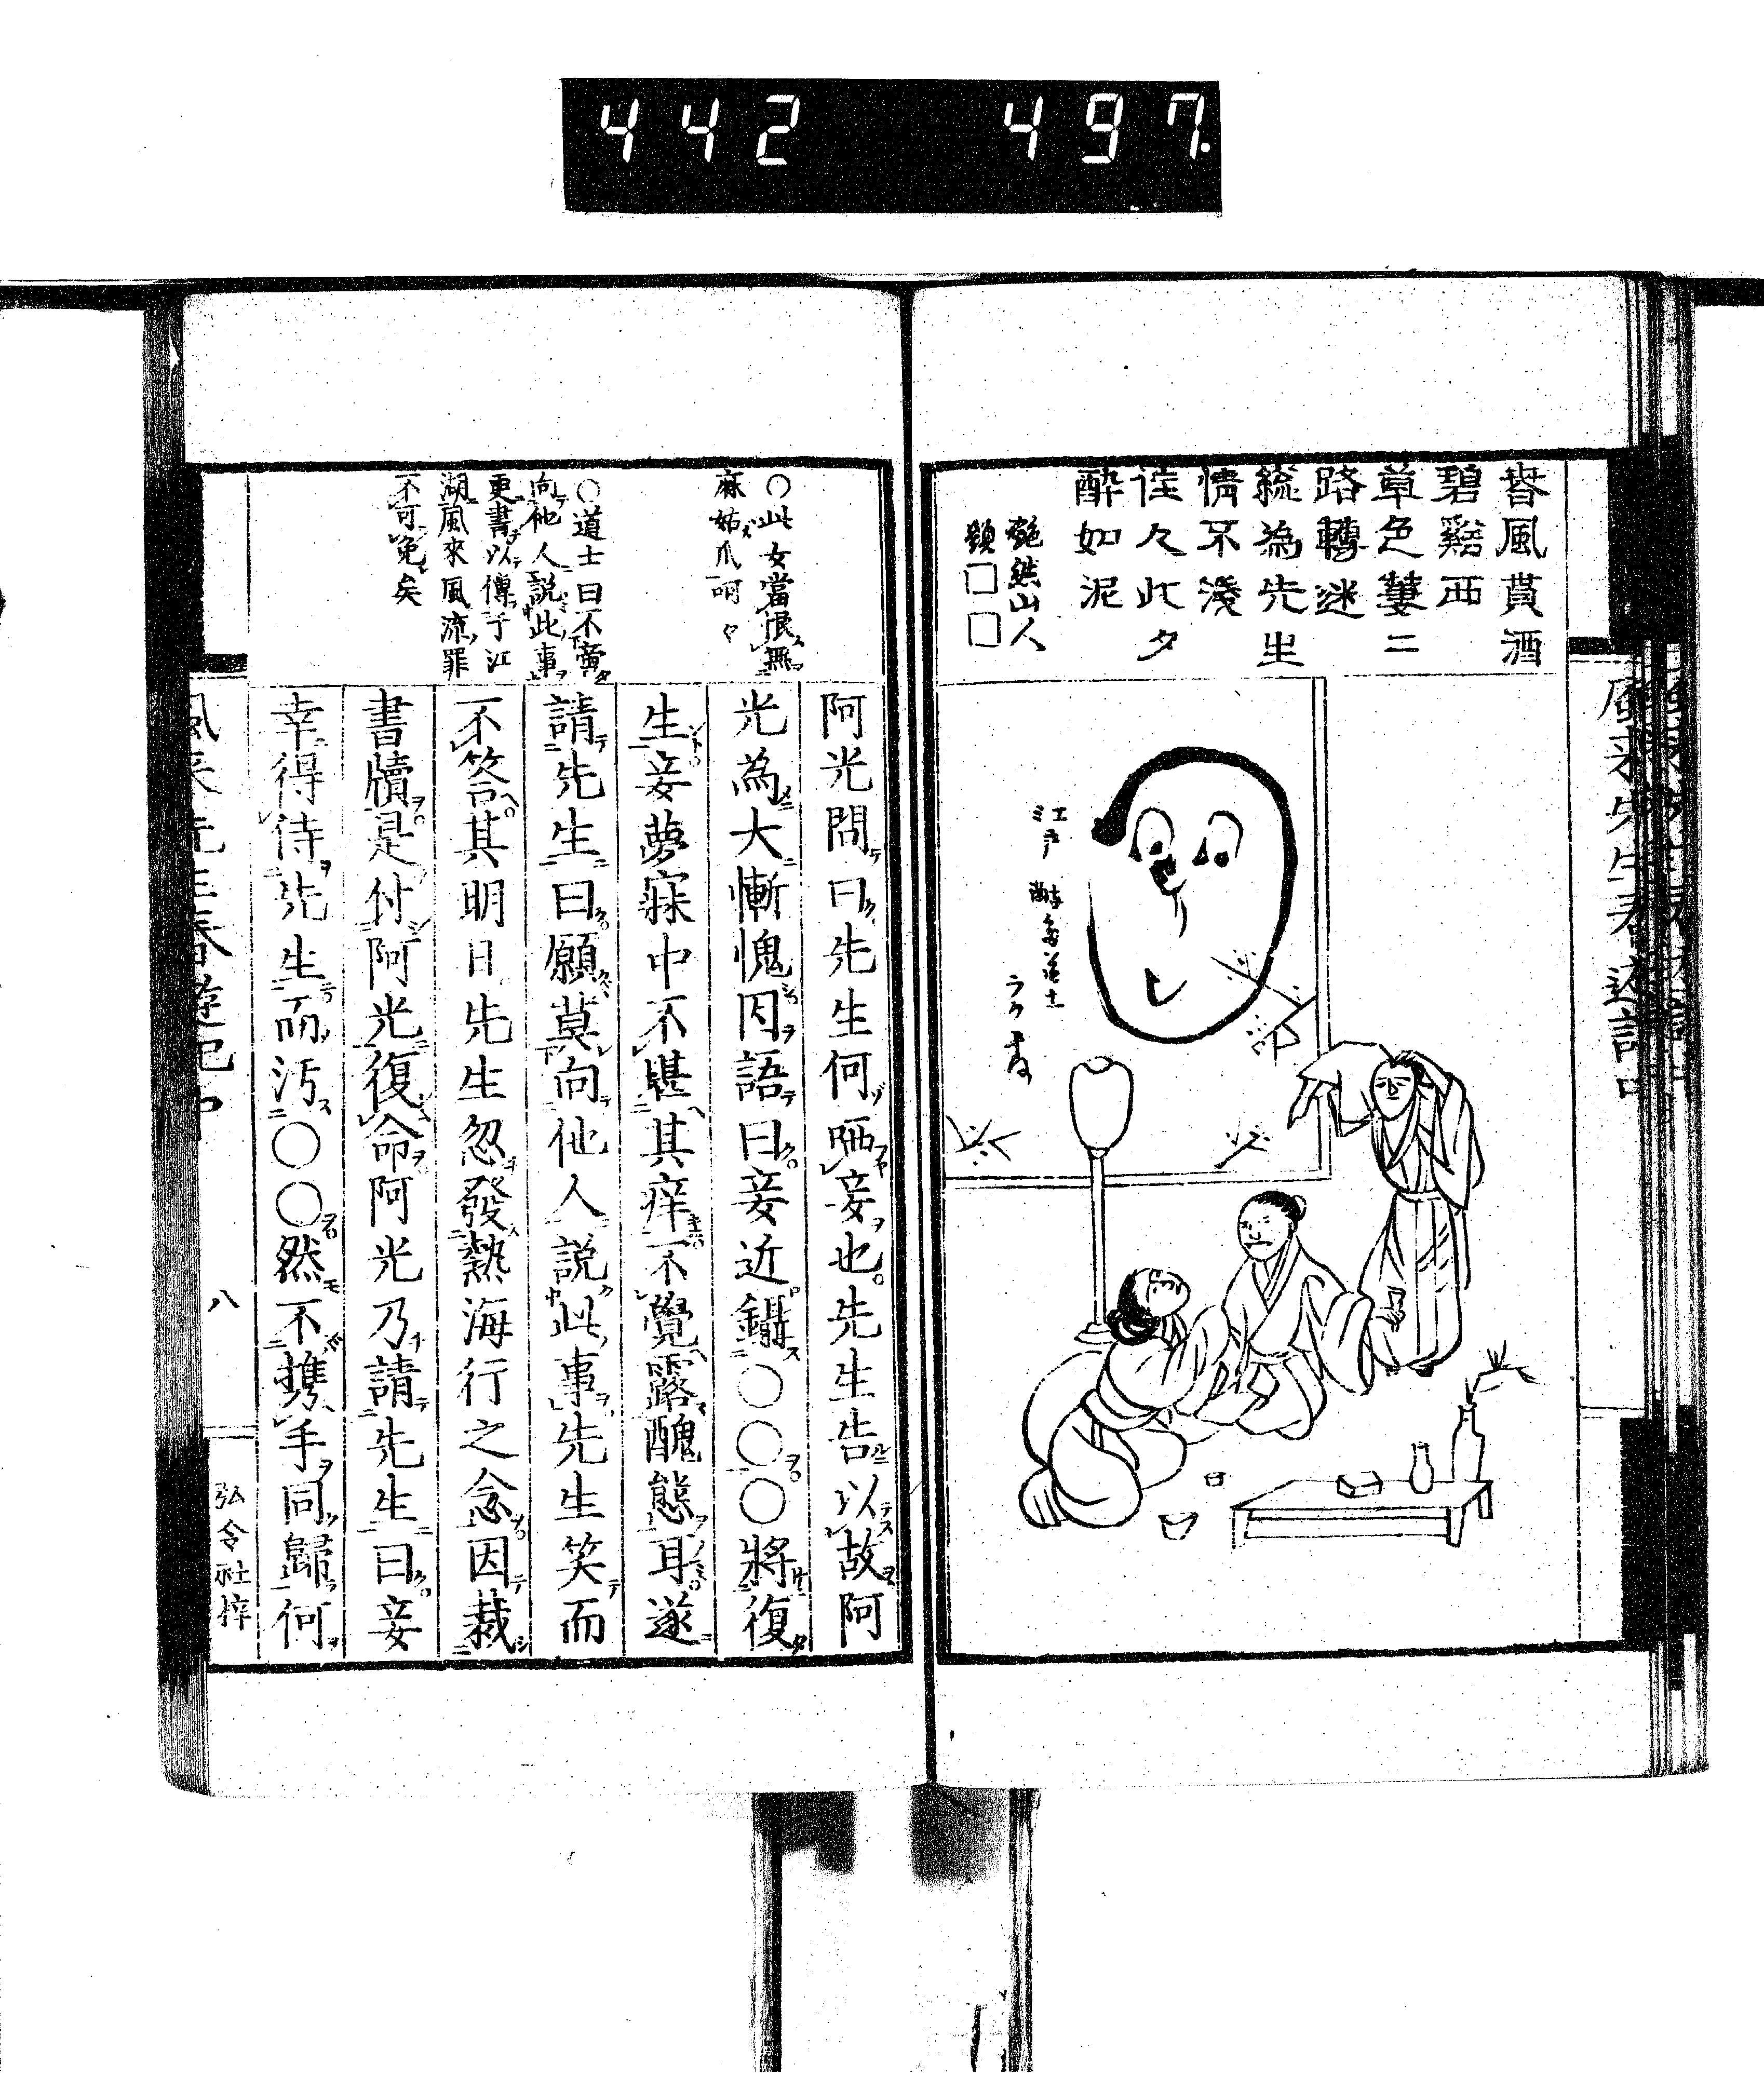 442 497.
春風貰酒
碧谿西
草色萋二
路轉迷
総為先生
情不淺
往々此夕
酔如泥
題□□
江戸
風来先生春遊記中
阿光問曰先生何哂妾也先生告以故阿
光為大慚愧因語曰妾近鑷○○○將復
生妾夢寐中不堪其痒不覺露醜態耳遂
請先生曰願莫向他人説此事先生笑而
不答其明日先生忽發熱海行之念因裁
書牘是付阿光復命阿光乃請先生曰妾
幸得侍先生而汚○○然不携手同歸何
○此女當恨無
麻姑爪呵々
○道士曰不啻
向他人説此事
更書以傳于江
湖風來風流罪
不可免矣
風来先生春遊記中
八
弘令社梓